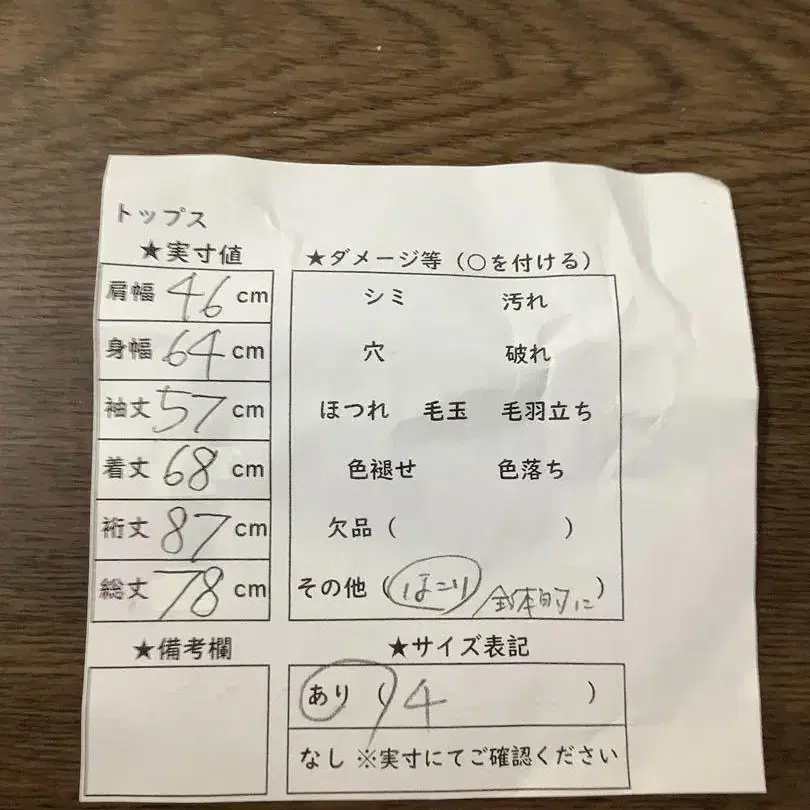 トップス
★実寸値
肩幅 46 cm
身幅 64 cm
袖丈 57 cm
着丈 68 cm
裄丈 87 cm
総丈 78 cm
★備考欄
★ダメージ等（○を付ける）
シミ 汚れ
穴 破れ
ほつれ 毛玉 毛羽立ち
色褪せ 色落ち
欠品（ ）
その他（ほこり 全体的に）
★サイズ表記
あり（4 ）
なし ※実寸にてご確認ください